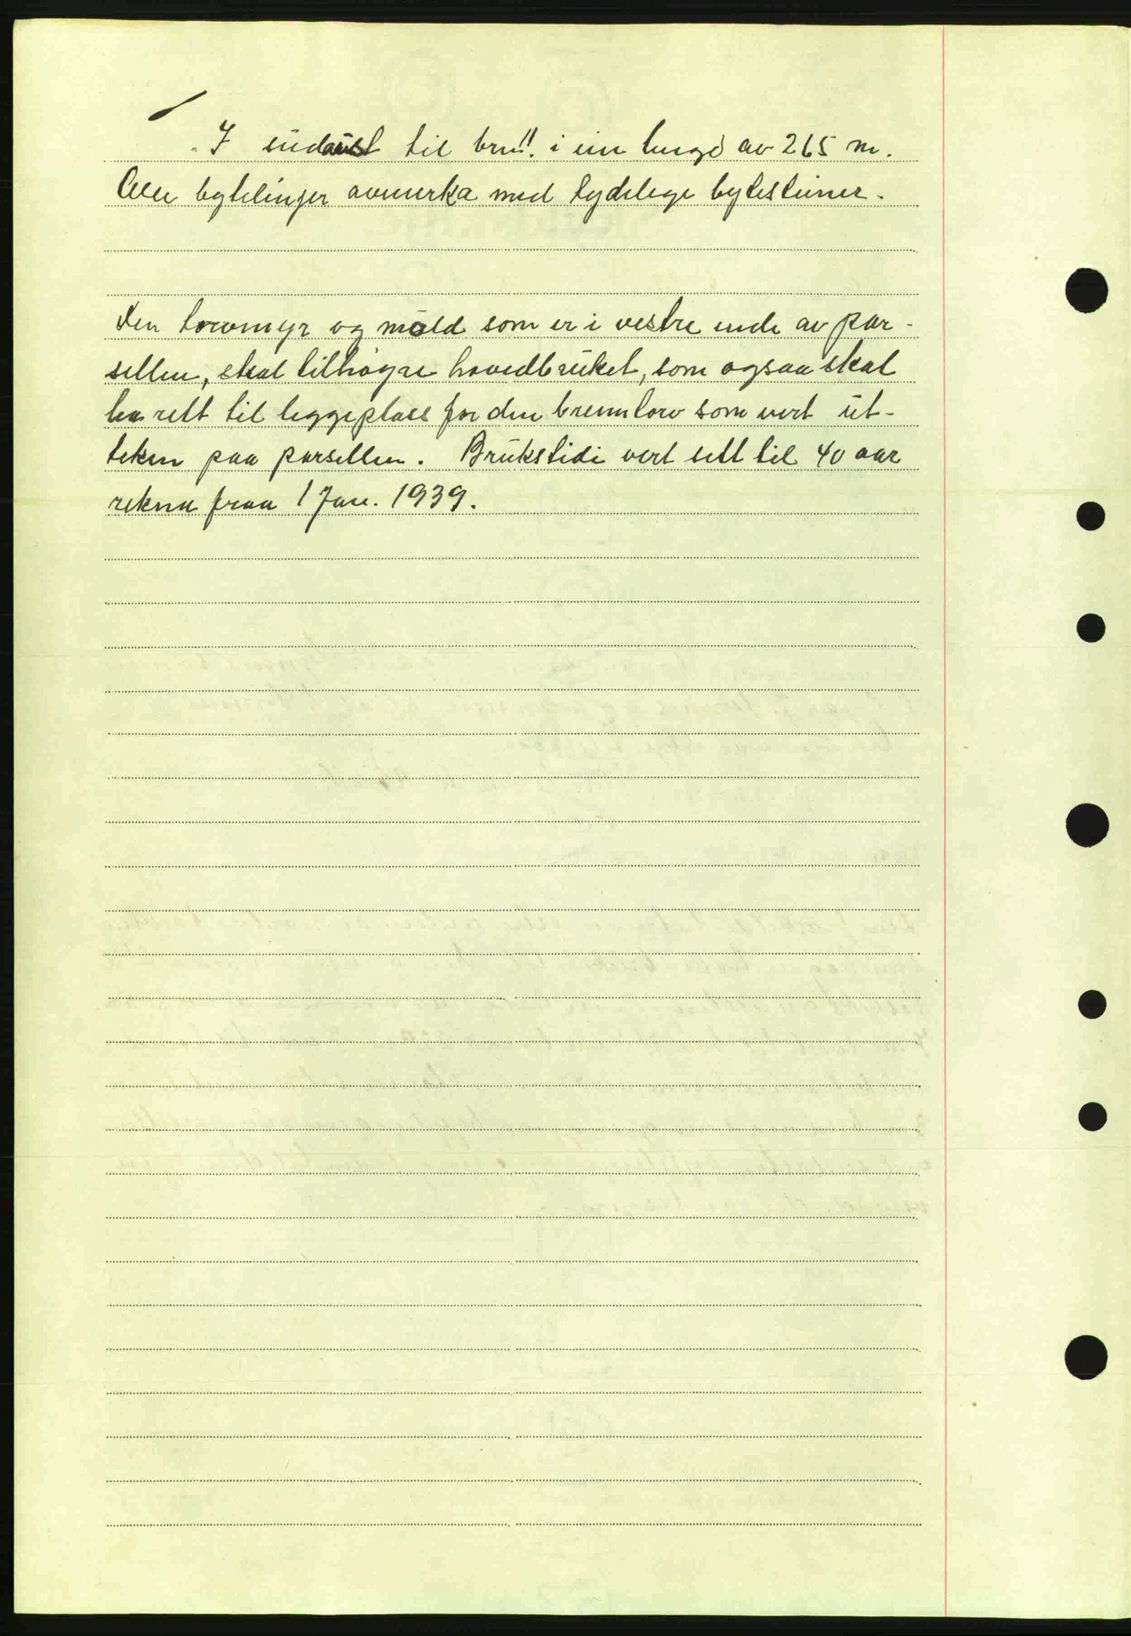 I südaust til brn!!. i ein lengd av 265 m.
Alle bytelinjer avmerka med tydelege bytesteiner.
Den torvmyr og mold som er i vestre ende av par-
sellen, skal tilhøyre hovedbrüket, som ogsaa skal
ha rett til leggeplass for den brenntorv som vert üt-
teken paa parsellen. Brükstidi vert sett til 40 aar
rekna fraa 1 Jan. 1939.